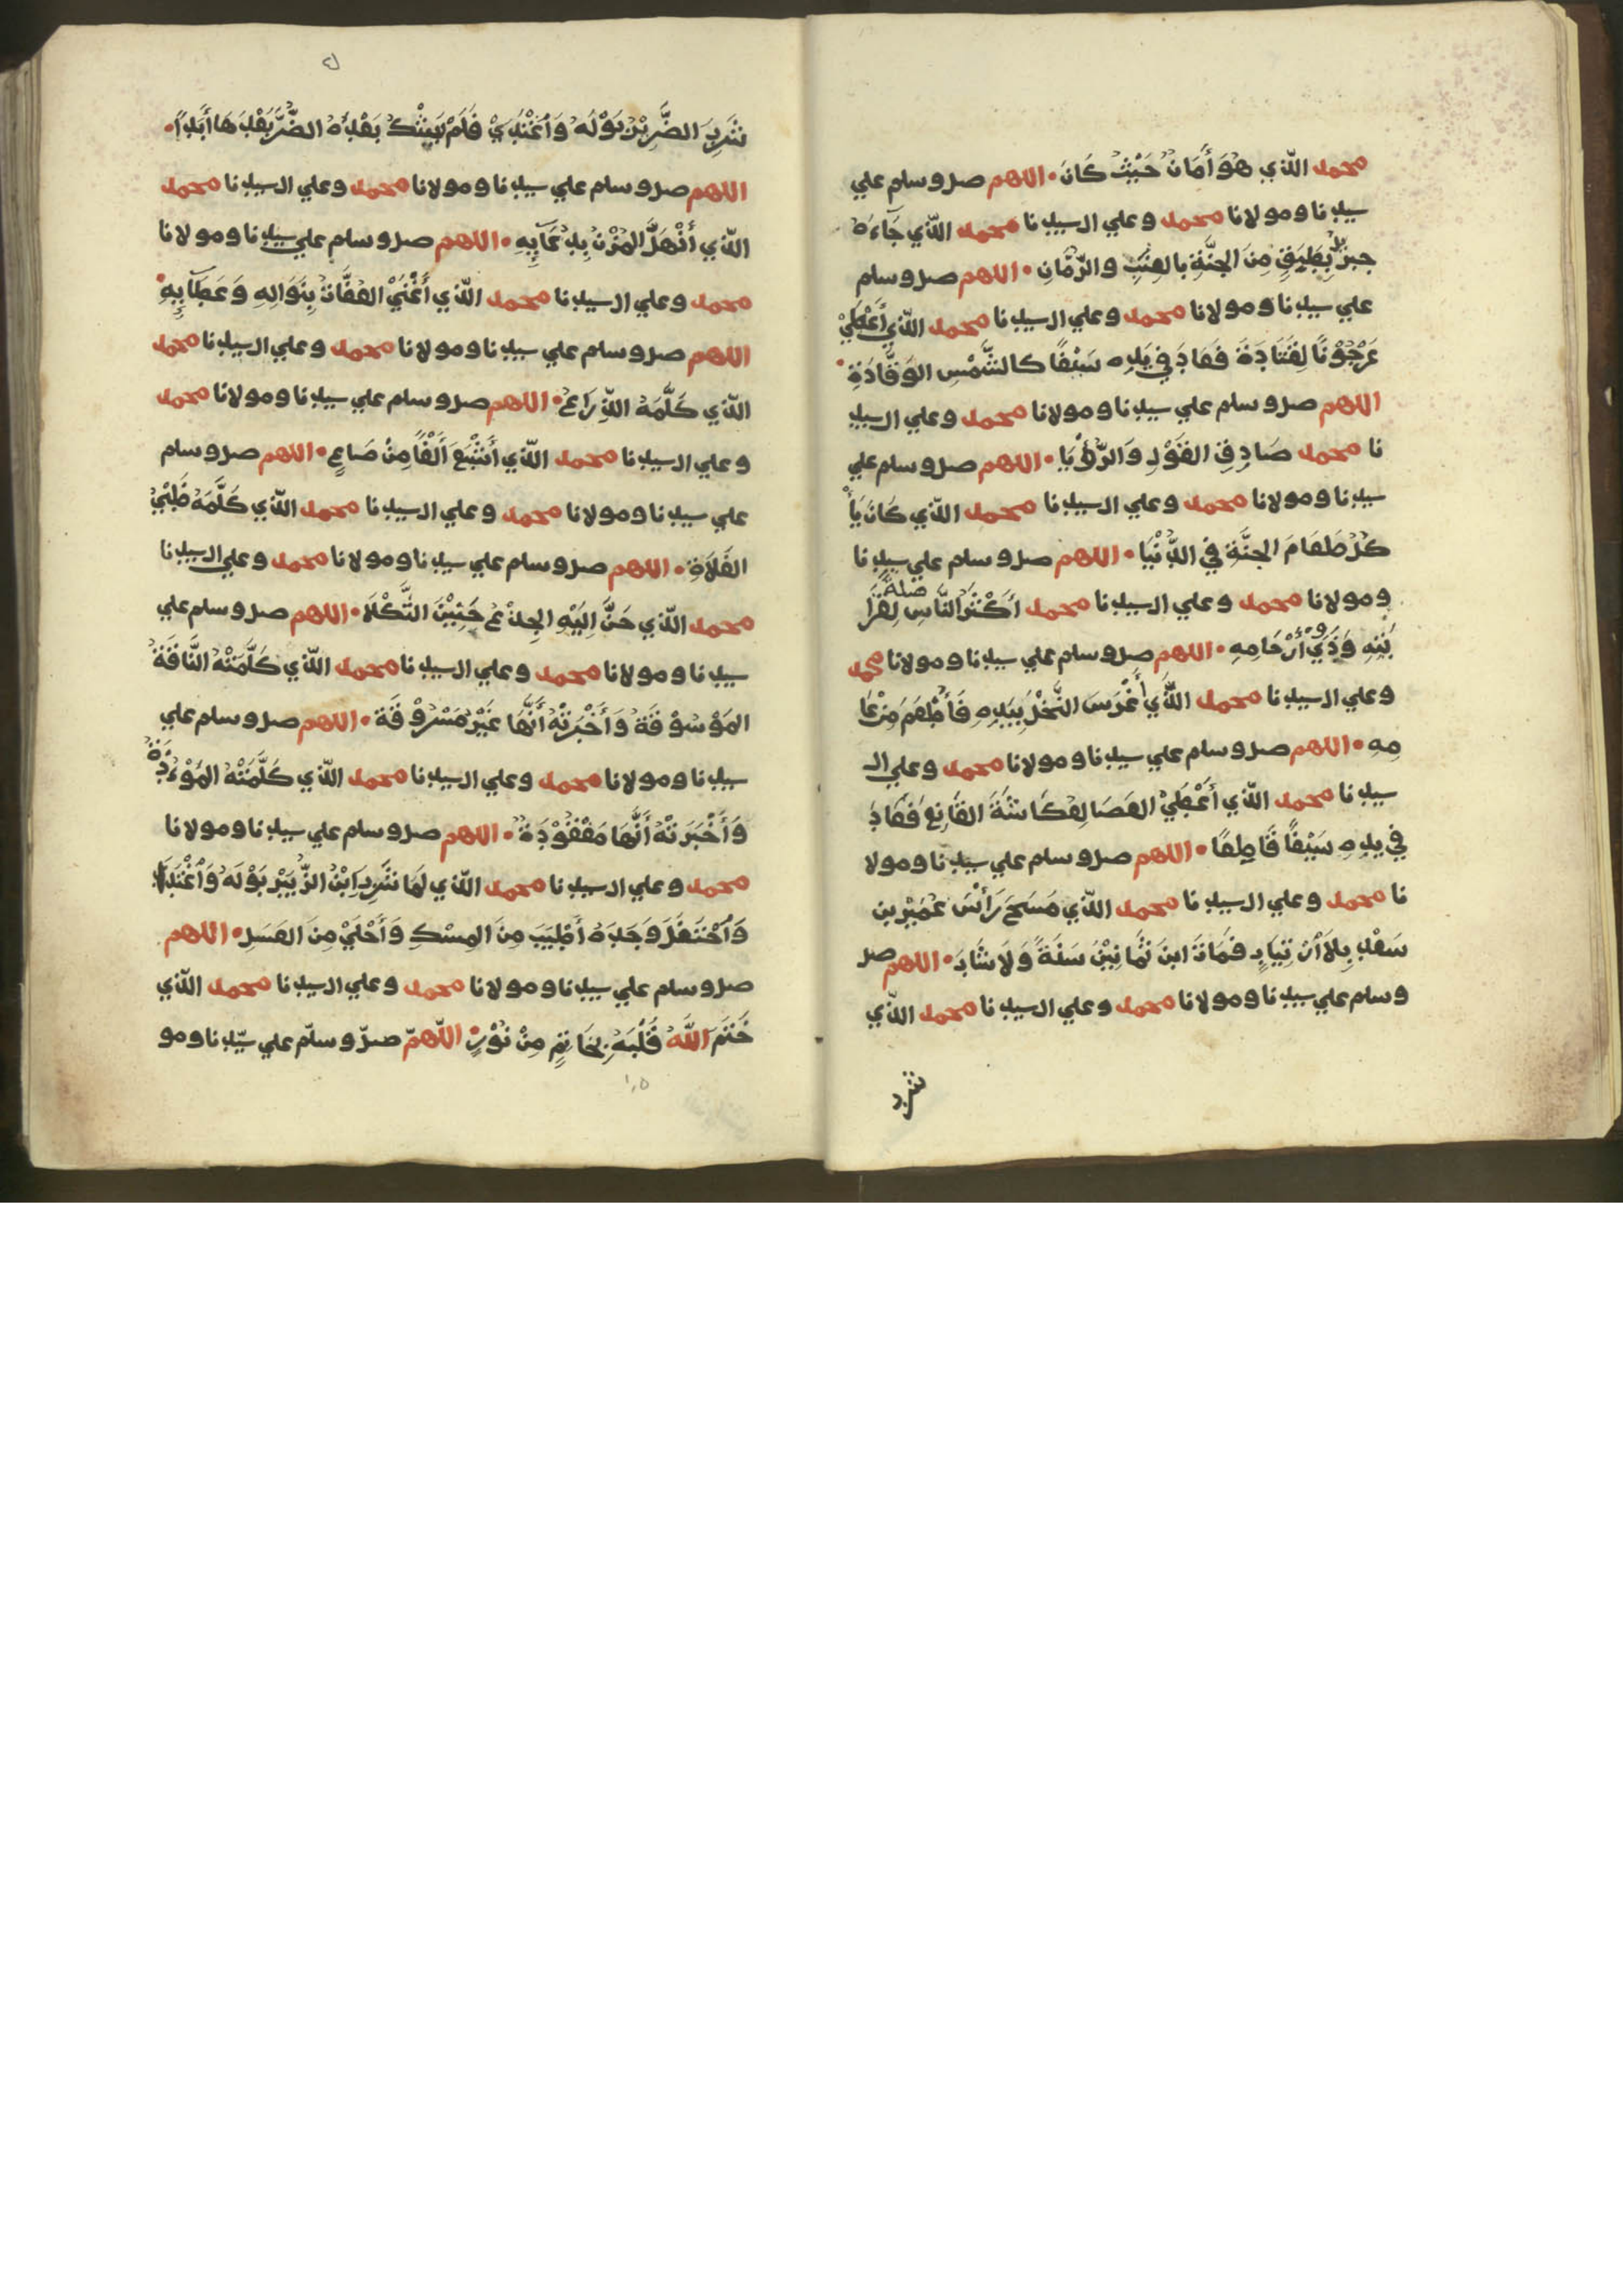 محمد الّذي هُوَ أَمَانٌ حَيْثُ كَانَ • اللهم صل وسلم علي
سيدنا ومولانا محمد وعلي ال سيدنا محمد الّذي جَآءَهُ
جبريل بِطَبَقٍ مِنَ الجنَّةِ بالعِنَبِ والرّمَّانِ • اللهم صل وسلم
علي سيدنا ومولانا محمد وعلي ال سيدنا محمد الّذي أَعْطَيْ
عَرْجُوْنًا لِقَتَادَةَ فَعَادَ فِي يَدِهِ سَيْفًا كالشَّمْسِ الوَقَّادَةِ •
اللهم صل وسلم علي سيدنا ومولانا محمد وعلي ال سيد
نا محمد صَادِقِ القَوْلِ وَالرُّؤْيَا • اللهم صل وسلم علي
سيدنا ومولانا محمد وعلي ال سيدنا محمد الّذي كَانَ يَأْ
كُلُ طَعَامَ الجنَّةِ فِي الدُّنْيَا • اللهم صل وسلم علي سيدنا
ومولانا محمد وعلي ال سيدنا محمد أَكْثَرُ النَّاسِ صلة لِقَرَا
بَتِهِ وَذَوِي أَرْحَامِهِ • اللهم صل وسلم علي سيدنا ومولانا محمد
وعلي ال سيدنا محمد الَّذِي أَغْرَسَ النَّخْلَ بِيَدِهِ فَأَطْعَمَ مِنْ عَا
مِهِ • اللهم صل وسلم علي سيدنا ومولانا محمد وعلي ال
سيدنا محمد الّذي أَعْطَيْ العَصَا لِعُكَاشَةَ القَانِعِ فَعَادَ
في يدِهِ سَيْفًا قَاطِعًا • اللهم صل وسلم علي سيدنا ومولا
نا محمد وعلي ال سيدنا محمد الّذي مَسَحَ رَأْسَ عُمَيْرِ بن
سَعْدٍ بِلَا ارْتِيَابٍ فَمَاتَ ابنَ ثَمَانِيْنَ سَنَةً وَلَا شَابَ • اللهم صل
وسلم علي سيدنا ومولانا محمد وعلي ال سيدنا محمد الّذي
شرب
شَرِبَ الضَّرِيْرُ بَوْلَهُ وَاغْتُذِيْ فَلَمْ يَشْكُ بَعْدَهُ الضُّرَّ بَعْدَهَا أَبَدًا •
اللهم صل وسلم علي سيدنا ومولانا محمد وعلي ال سيدنا محمد
الّذي أَنْهَلَّ المُزْنُ بِدُعَآئِهِ • اللهم صل وسلم علي سيدنا ومولانا
محمد وعلي ال سيدنا محمد الّذي أَغْنَيْ العُفَاتَ بِنَوَالِهِ وَعَطَآئِهِ •
اللهم صل وسلم علي سيدنا ومولانا محمد وعلي ال سيدنا محمد
الّذي كَلَّمَهُ الذِّرَاعُ • اللهم صل وسلم علي سيدنا ومولانا محمد
وعلي ال سيدنا محمد الّذي أَشْبَعَ أَلْفًا مِنْ صَاعٍ • اللهم صل وسلم
علي سيدنا ومولانا محمد وعلي ال سيدنا محمد الّذي كَلَّمَهُ ظَبْيُ
الفَلَاةِ • اللهم صل وسلم علي سيدنا ومولانا محمد وعلي ال سيدنا
محمد الّذي حَنَّ إِلَيْهِ الجِذْعُ حَنِيْنَ الثَّكْلَا • اللهم صل وسلم علي
سيدنا ومولانا محمد وعلي ال سيدنا محمد الّذي كَلَّمَتْهُ النَّاقَةُ
المَوْسُوْقَةُ وَأَخْبَرَتْهُ أَنَّهَا غَيْرُ مَسْرُوْقَة • اللهم صل وسلم علي
سيدنا ومولانا محمد وعلي ال سيدنا محمد الّذي كَلَّمَتْهُ المَوْءُدَةُ
وَأَخْبَرَتْهُ أَنَّهَا مَفْقُوْدَةٌ • اللهم صل وسلم علي سيدنا ومولانا
محمد وعلي ال سيدنا محمد الّذي لمَا شَرِبَ ابْنُ الزُّبَيْرِ بَوْلَهُ وَاغْتَذَا
وَاحْتَفَلَ وَجَدَهُ أَطْيَبَ مِنَ المِسْكِ وَأَحْلَيْ مِنَ العَسَلِ • اللهم
صل وسلم علي سيدنا ومولانا محمد وعلي ال سيدنا محمد الّذي
خَتَمَ اللهُ قَلْبَهُ بِخَاتِمٍ مِنْ نُوْرٍ • اللّهمّ صلّ وسلّم علي سيّدنا ومو
١٠٥